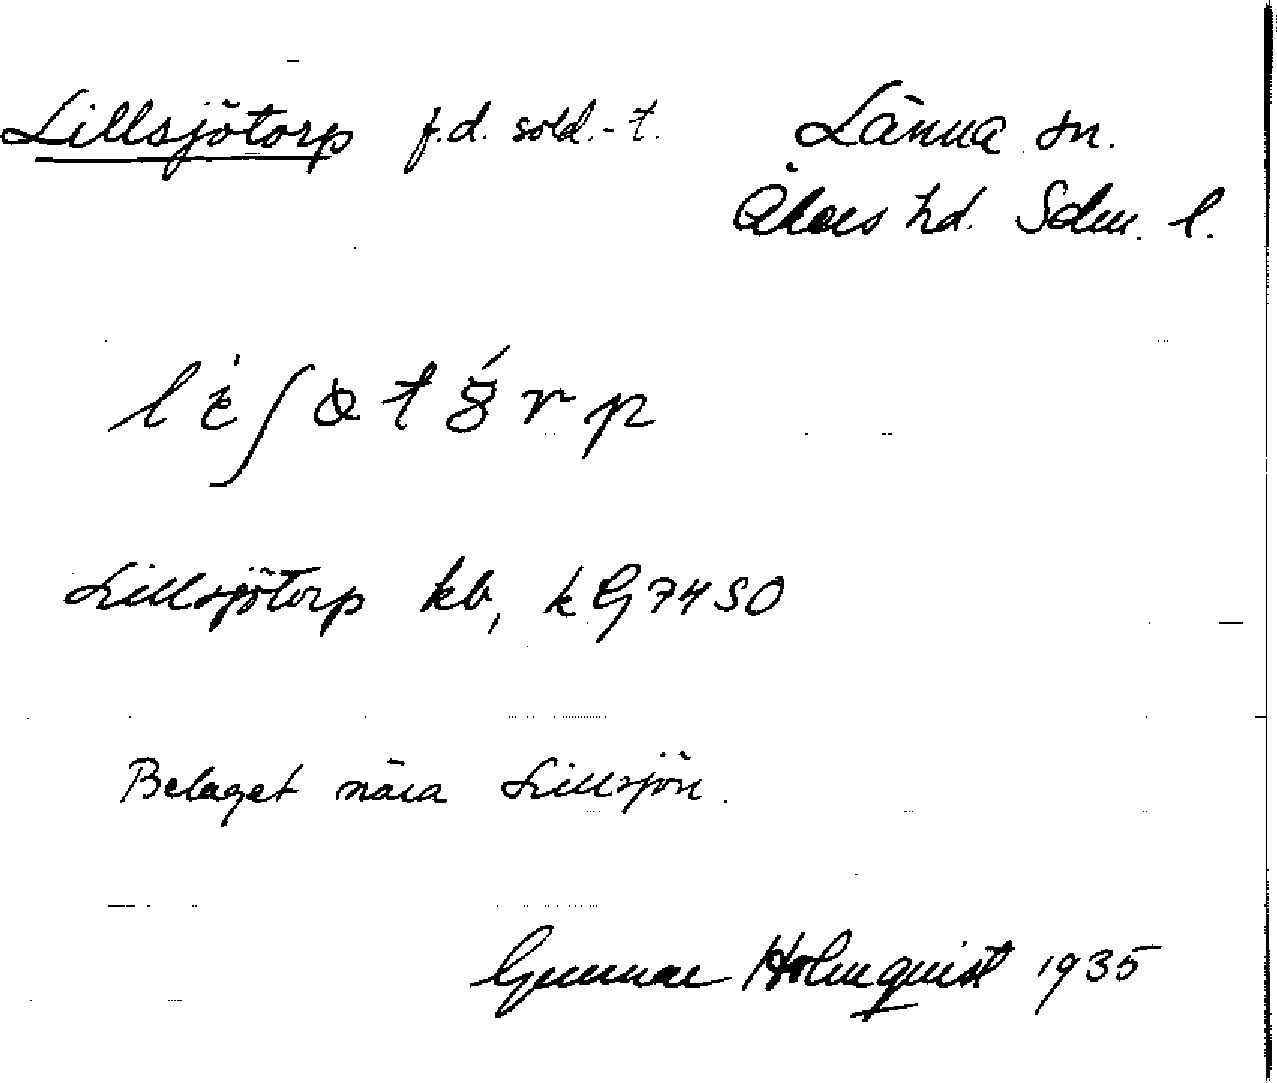 Lillsjötorp f.d. sold.-t. Länna sn.
Åkers hd. Sdm. l.
Lillsjötorp kb, k G 74 SO
Belaget nära Lillsjön.
Gunnar Holmquist 1935